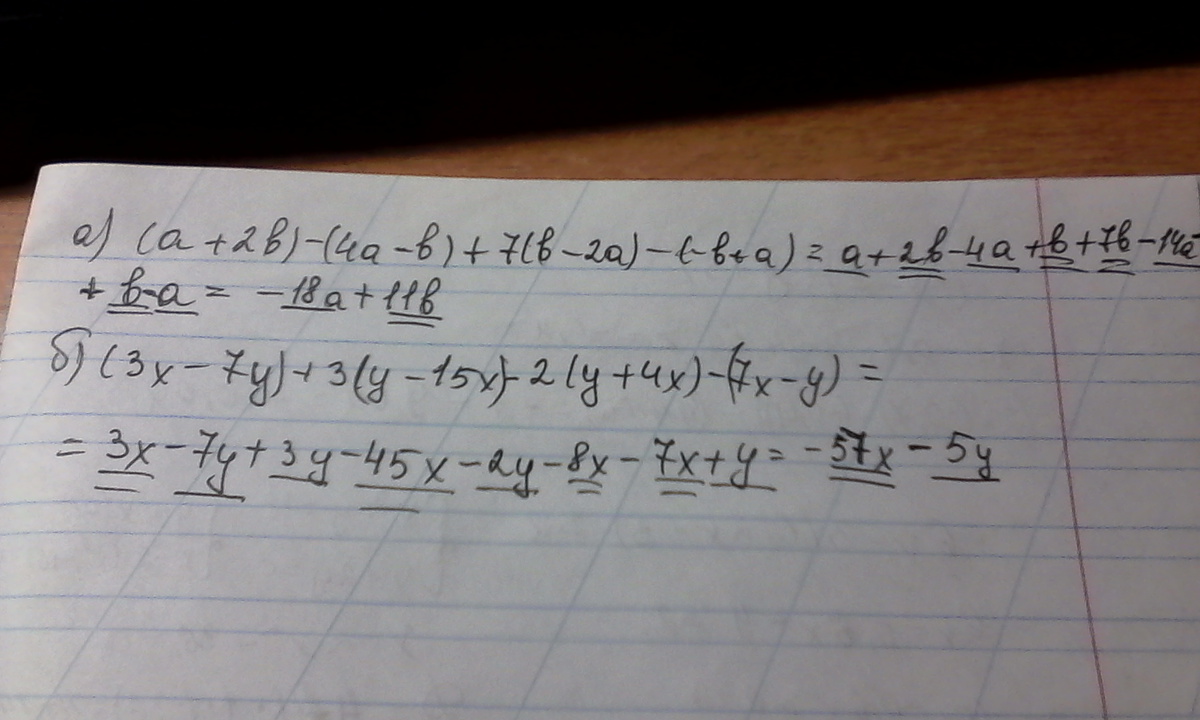 а) (a+2b)-(4a-b)+7(b-2a)-(-b+a)=a+2b-4a+b+7b-14a
+b-a=-18a+11b
б) (3x-7y)+3(y-15x)-2(y+4x)-(7x-y)=
=3x-7y+3y-45x-2y-8x-7x+y=-57x-5y